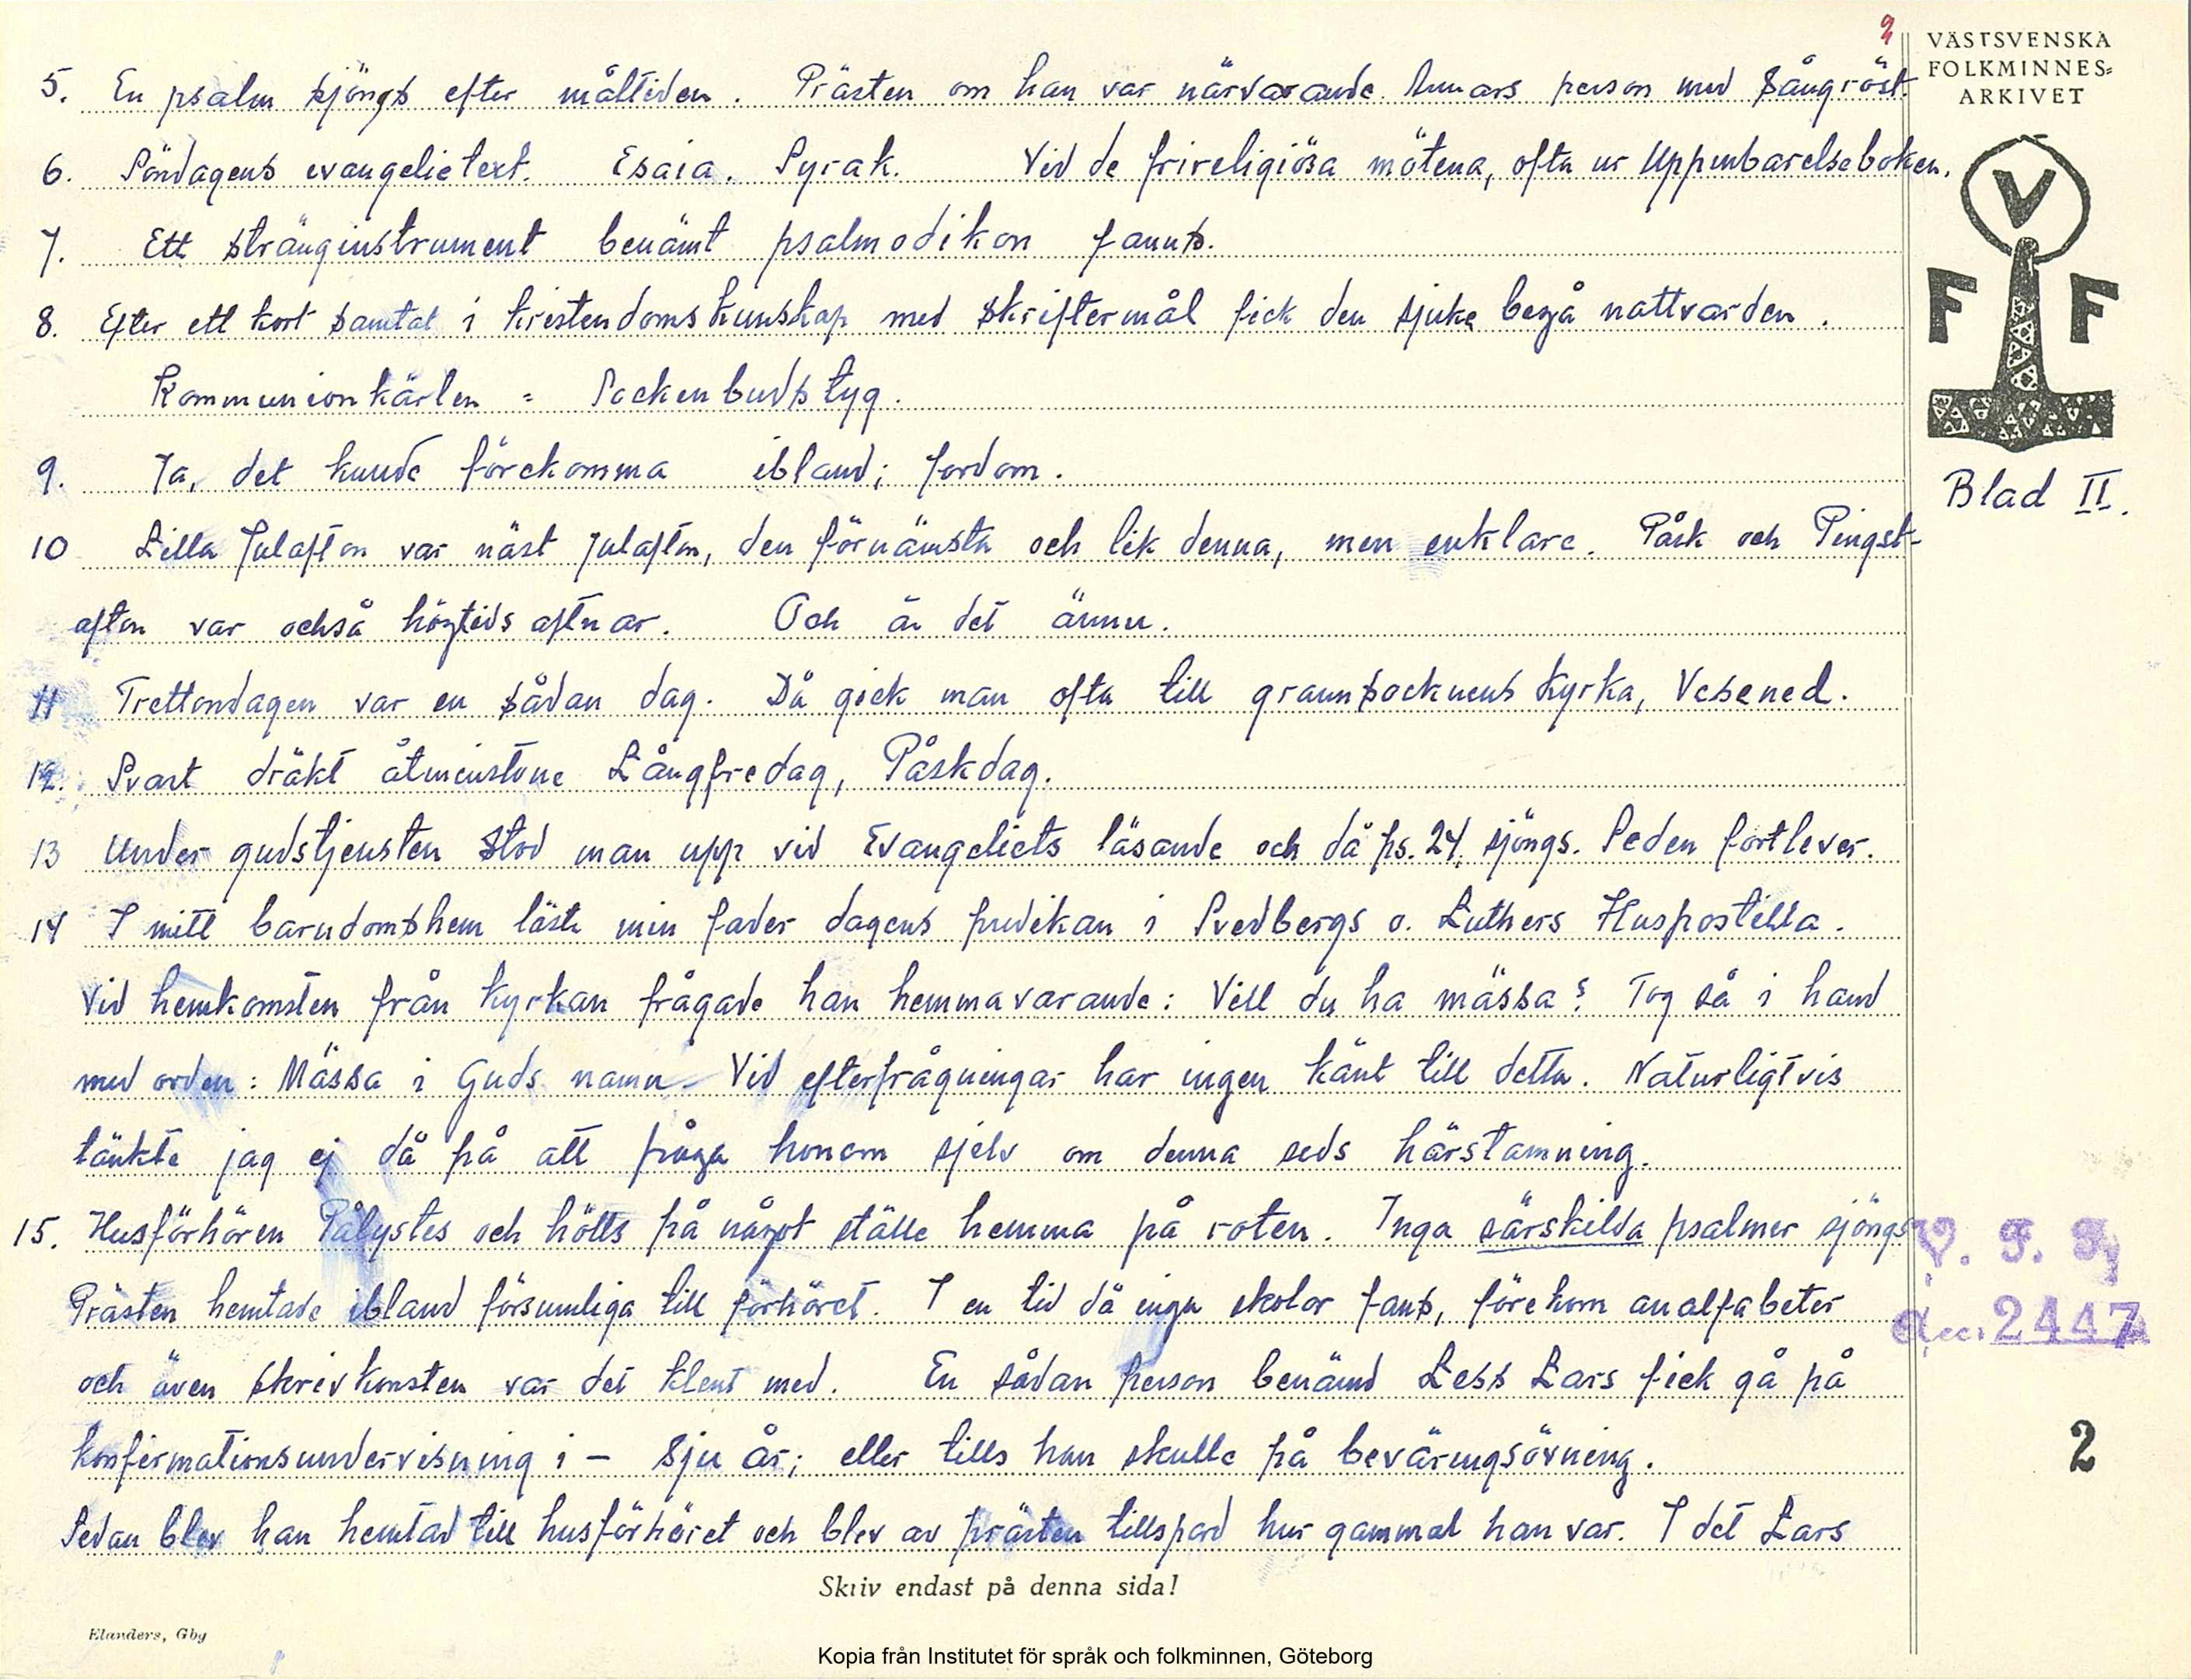 2
VÄSTSVENSKA
FOLKMINNES=
ARKIVET
V
F F
Blad II.
5. En psalm sjöngs efter måltiden. Prästen om han var närvarande. Annars person med sångröst.
6. Söndagens evangelietext. Esaia. Syrak. Vid de frireligiösa mötena, ofta ur Uppenbarelseboken.
7. Ett stränginstrument benämt psalmodikon fanns.
8. Efter ett kort samtal i kristendomskunskap med skriftermål fick den sjuke begå nattvarden.
Kommunionkärlen = Sockenbudstyg.
9. Ja, det kunde förekomma ibland; fordom.
10 Lilla Julafton var näst julafton, den förnämsta och lik denna, men enklare. Påsk och Pingst-
afton var också högtids aftnar. Och är det ännu.
11 Trettondagen var en sådan dag. Då gick man ofta till grannsocknens kyrka, Vesened.
12. Svart dräkt åtminstone Långfredag, Påskdag.
13 Under gudstjensten stod man upp vid Evangeliets läsande och då ps. 24, sjöngs. Seden fortlever.
14 I mitt barndomshem läste min fader dagens predikan i Svedbergs o. Luthers Huspostilla.
Vid hemkomsten från kyrkan frågade han hemmavarande: Vill du ha mässa? Tog så i hand
med orden: Mässa i Guds namn - Vid efterfrågningar har ingen känt till detta. Naturligtvis
tänkte jag ej då på att fråga honom sjelv om denna seds härstamning.
15. Husförhören Pålystes och hölts på något ställe hemma på roten. Inga särskilda psalmer sjöngs
Prästen hemtade ibland försumliga till förhöret. I en tid då inga skolor fans, förekom analfabeter
och även skrivkonsten var det klent med. En sådan person benämd Less Lars fick gå på
konfirmationsundervisning i - sju år; eller tills han skulle på beväringsövning.
Sedan blev han hemtad till husförhöret och blev av prästen tillspord hur gammal han var. I det Lars
V. F. F.
Acc. 2447
2
Skriv endast på denna sida!
Elanders, Gbg
Kopia från Institutet för språk och folkminnen, Göteborg